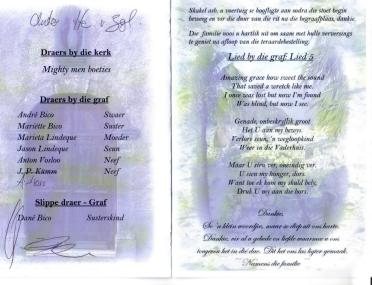 Draers by die kerk
Mighty men boeties
Draers by die graf
André Bico Swaer
Mariëtte Bico Suster
Marieta Lindeque Moeder
Jason Lindeque Seun
Anton Vosloo Neef
J.P. Kämm Neef
Slippe draer - Graf
Dané Bico Susterskind
Skakel asb. u voertuig se hoofligte aan sodra die stoet begin
beweeg en vir die duur van die rit na die begraafplaas, dankie.
Die familie nooi u hartlik uit om saam met hulle verversings
te geniet na afloop van die teraardebestelling.
Lied by die graf: Lied 5
Amazing grace how sweet the sound
That saved a wretch like me.
I once was lost but now I'm found
Was blind, but now I see.
Genade, onbeskryflik groot
Het U aan my bewys.
Verlore seun, 'n wegloopkind
Weer in die Vaderhuis.
Maar U stem ver, oneindig ver.
U sien my honger, dors.
Want toe ek kom my skuld bely,
Druk U my aan die bors.
Dankie,
So 'n klein woordjie, maar so diep uit ons harte.
Dankie, vir al u gebede en liefde waarmee u ons
tougroen het in die dae. Dit het ons las ligter gemaak.
Namens die familie